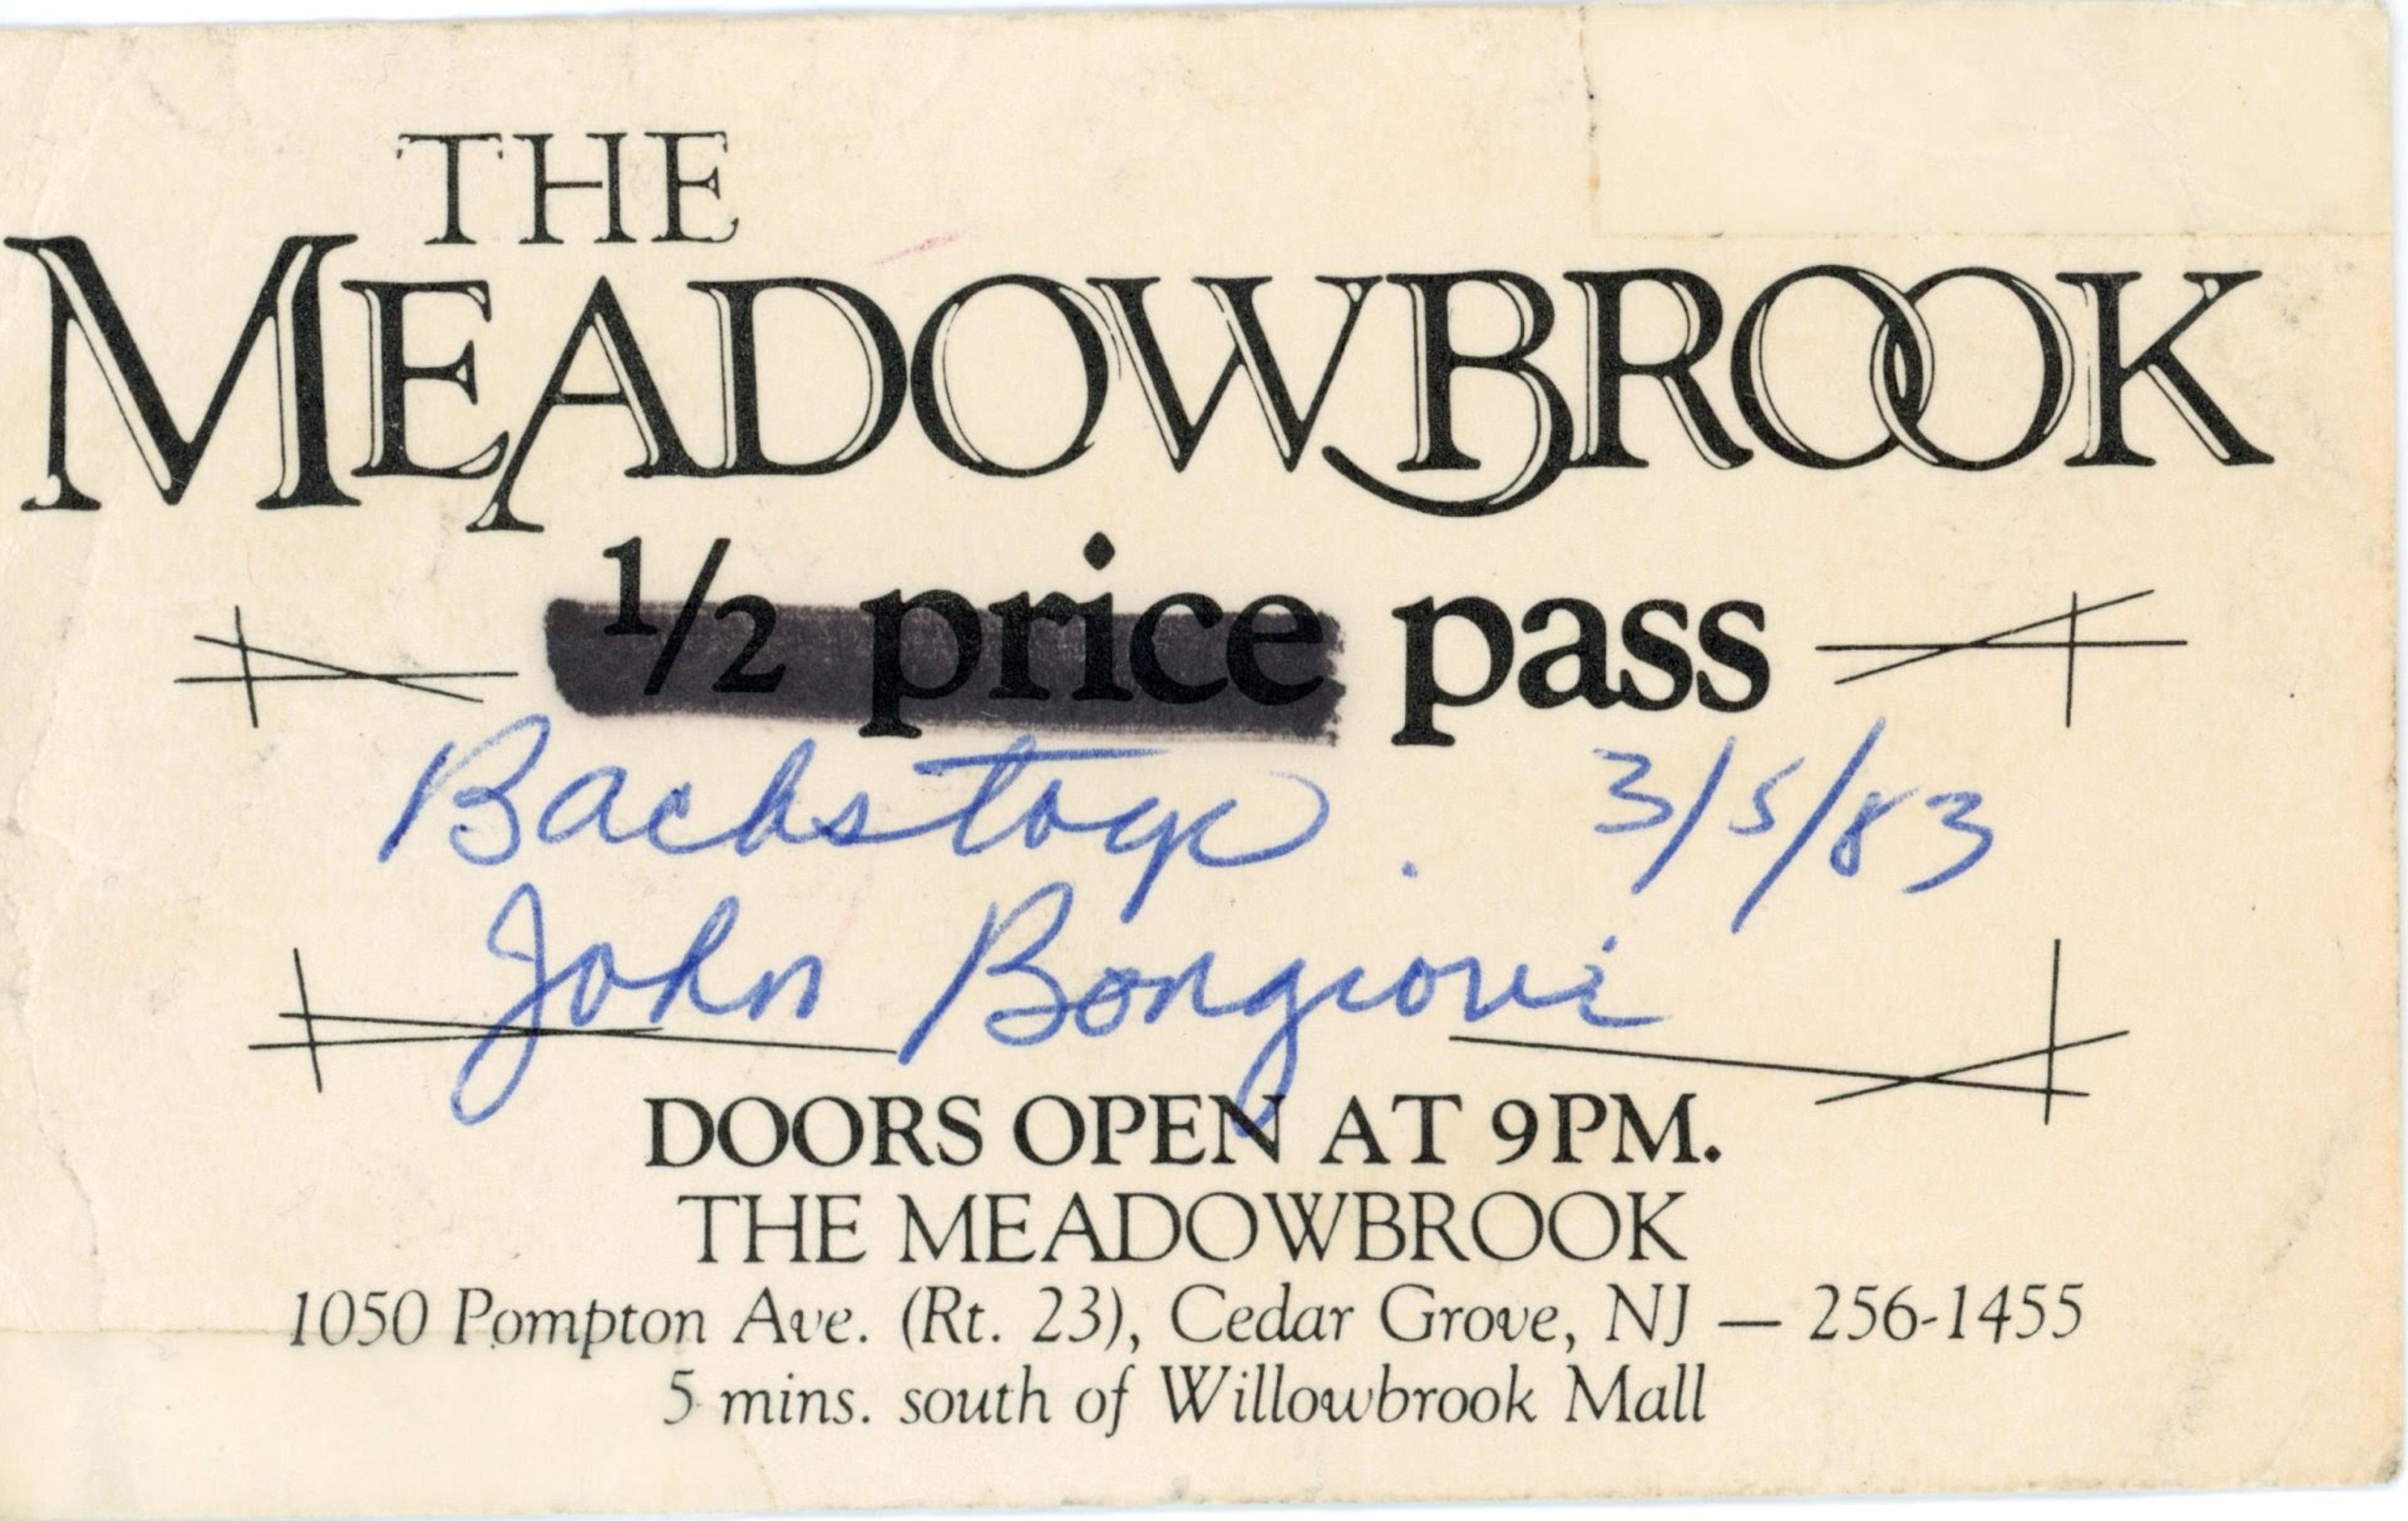 THE
MEADOWBROOK
1/2 price pass
Backstage. 3/5/83
John Bongiovi
DOORS OPEN AT 9PM.
THE MEADOWBROOK
1050 Pompton Ave. (Rt. 23), Cedar Grove, NJ — 256-1455
5 mins. south of Willowbrook Mall